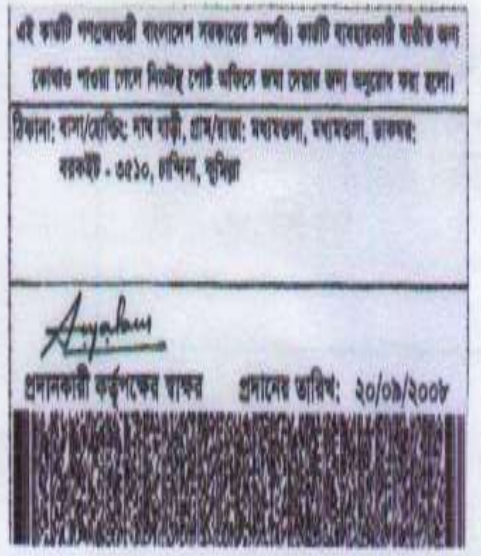 এই কার্ডটি গণপ্রজাতন্ত্রী বাংলাদেশ সরকারের সম্পত্তি। কার্ডটি ব্যবহারকারী ব্যতীত অন্য
কোথাও পাওয়া গেলে নিকটস্থ পোষ্ট অফিসে জমা দেয়ার জন্য অনুরোধ করা হলো।
ঠিকানা: বাসা/হোল্ডিং: নাথ বাড়ী, গ্রাম/রাস্তা: মধ্যমতলা, মধ্যমতলা, ডাকঘর:
বরকইট - ৩৫১০, চান্দিনা, কুমিল্লা
প্রদানকারী কর্তৃপক্ষের স্বাক্ষর প্রদানের তারিখ: ২০/০৯/২০০৮